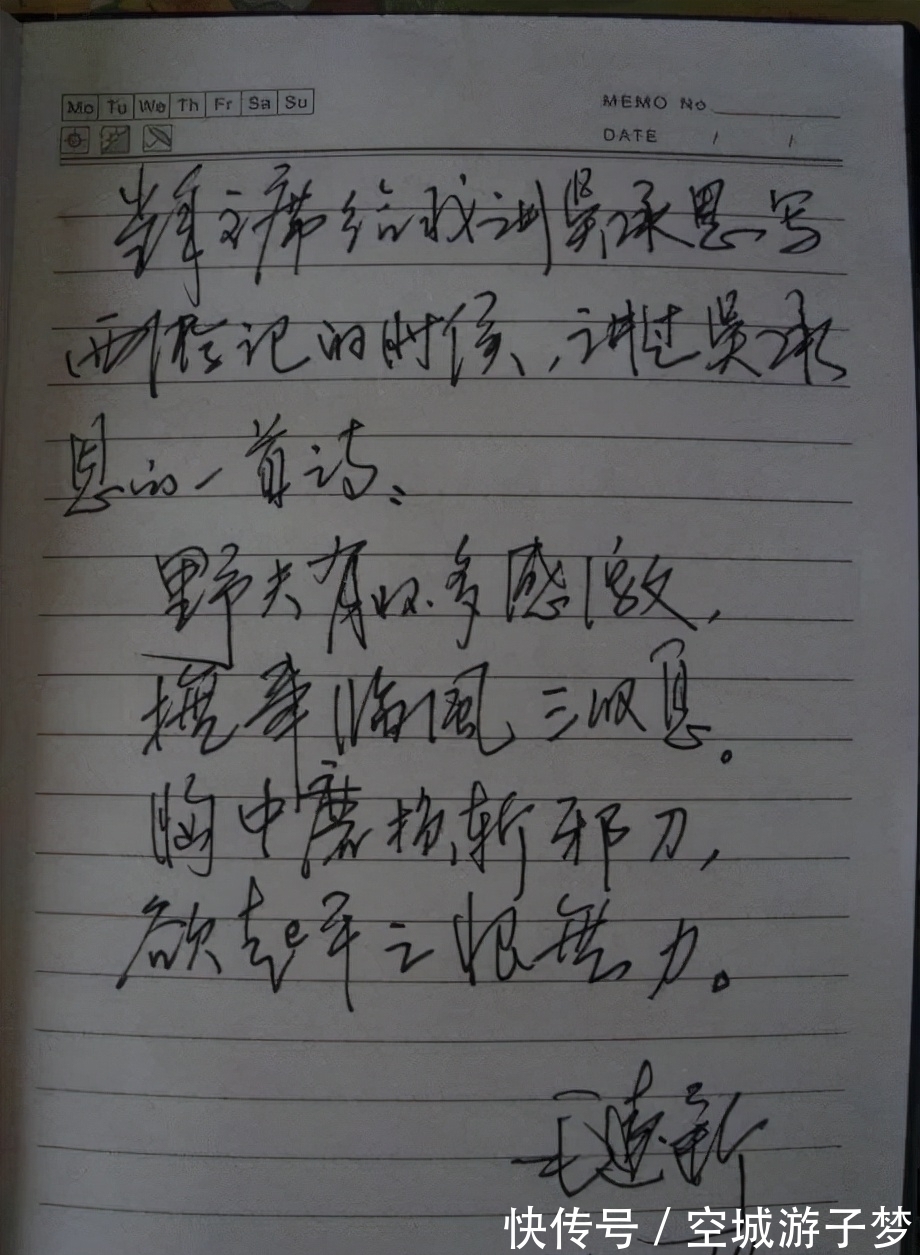 Mo Tu We Th Fr Sa Su
MEMO No
DATE / /
当年主席给我讲吴承恩写
西游记的时候，讲过吴承
恩的一首诗：
野夫有怀多感激，
抚事临风三叹息。
胸中磨损斩邪刀，
欲起平之恨无力。
毛远新
快传号 / 空城游子梦